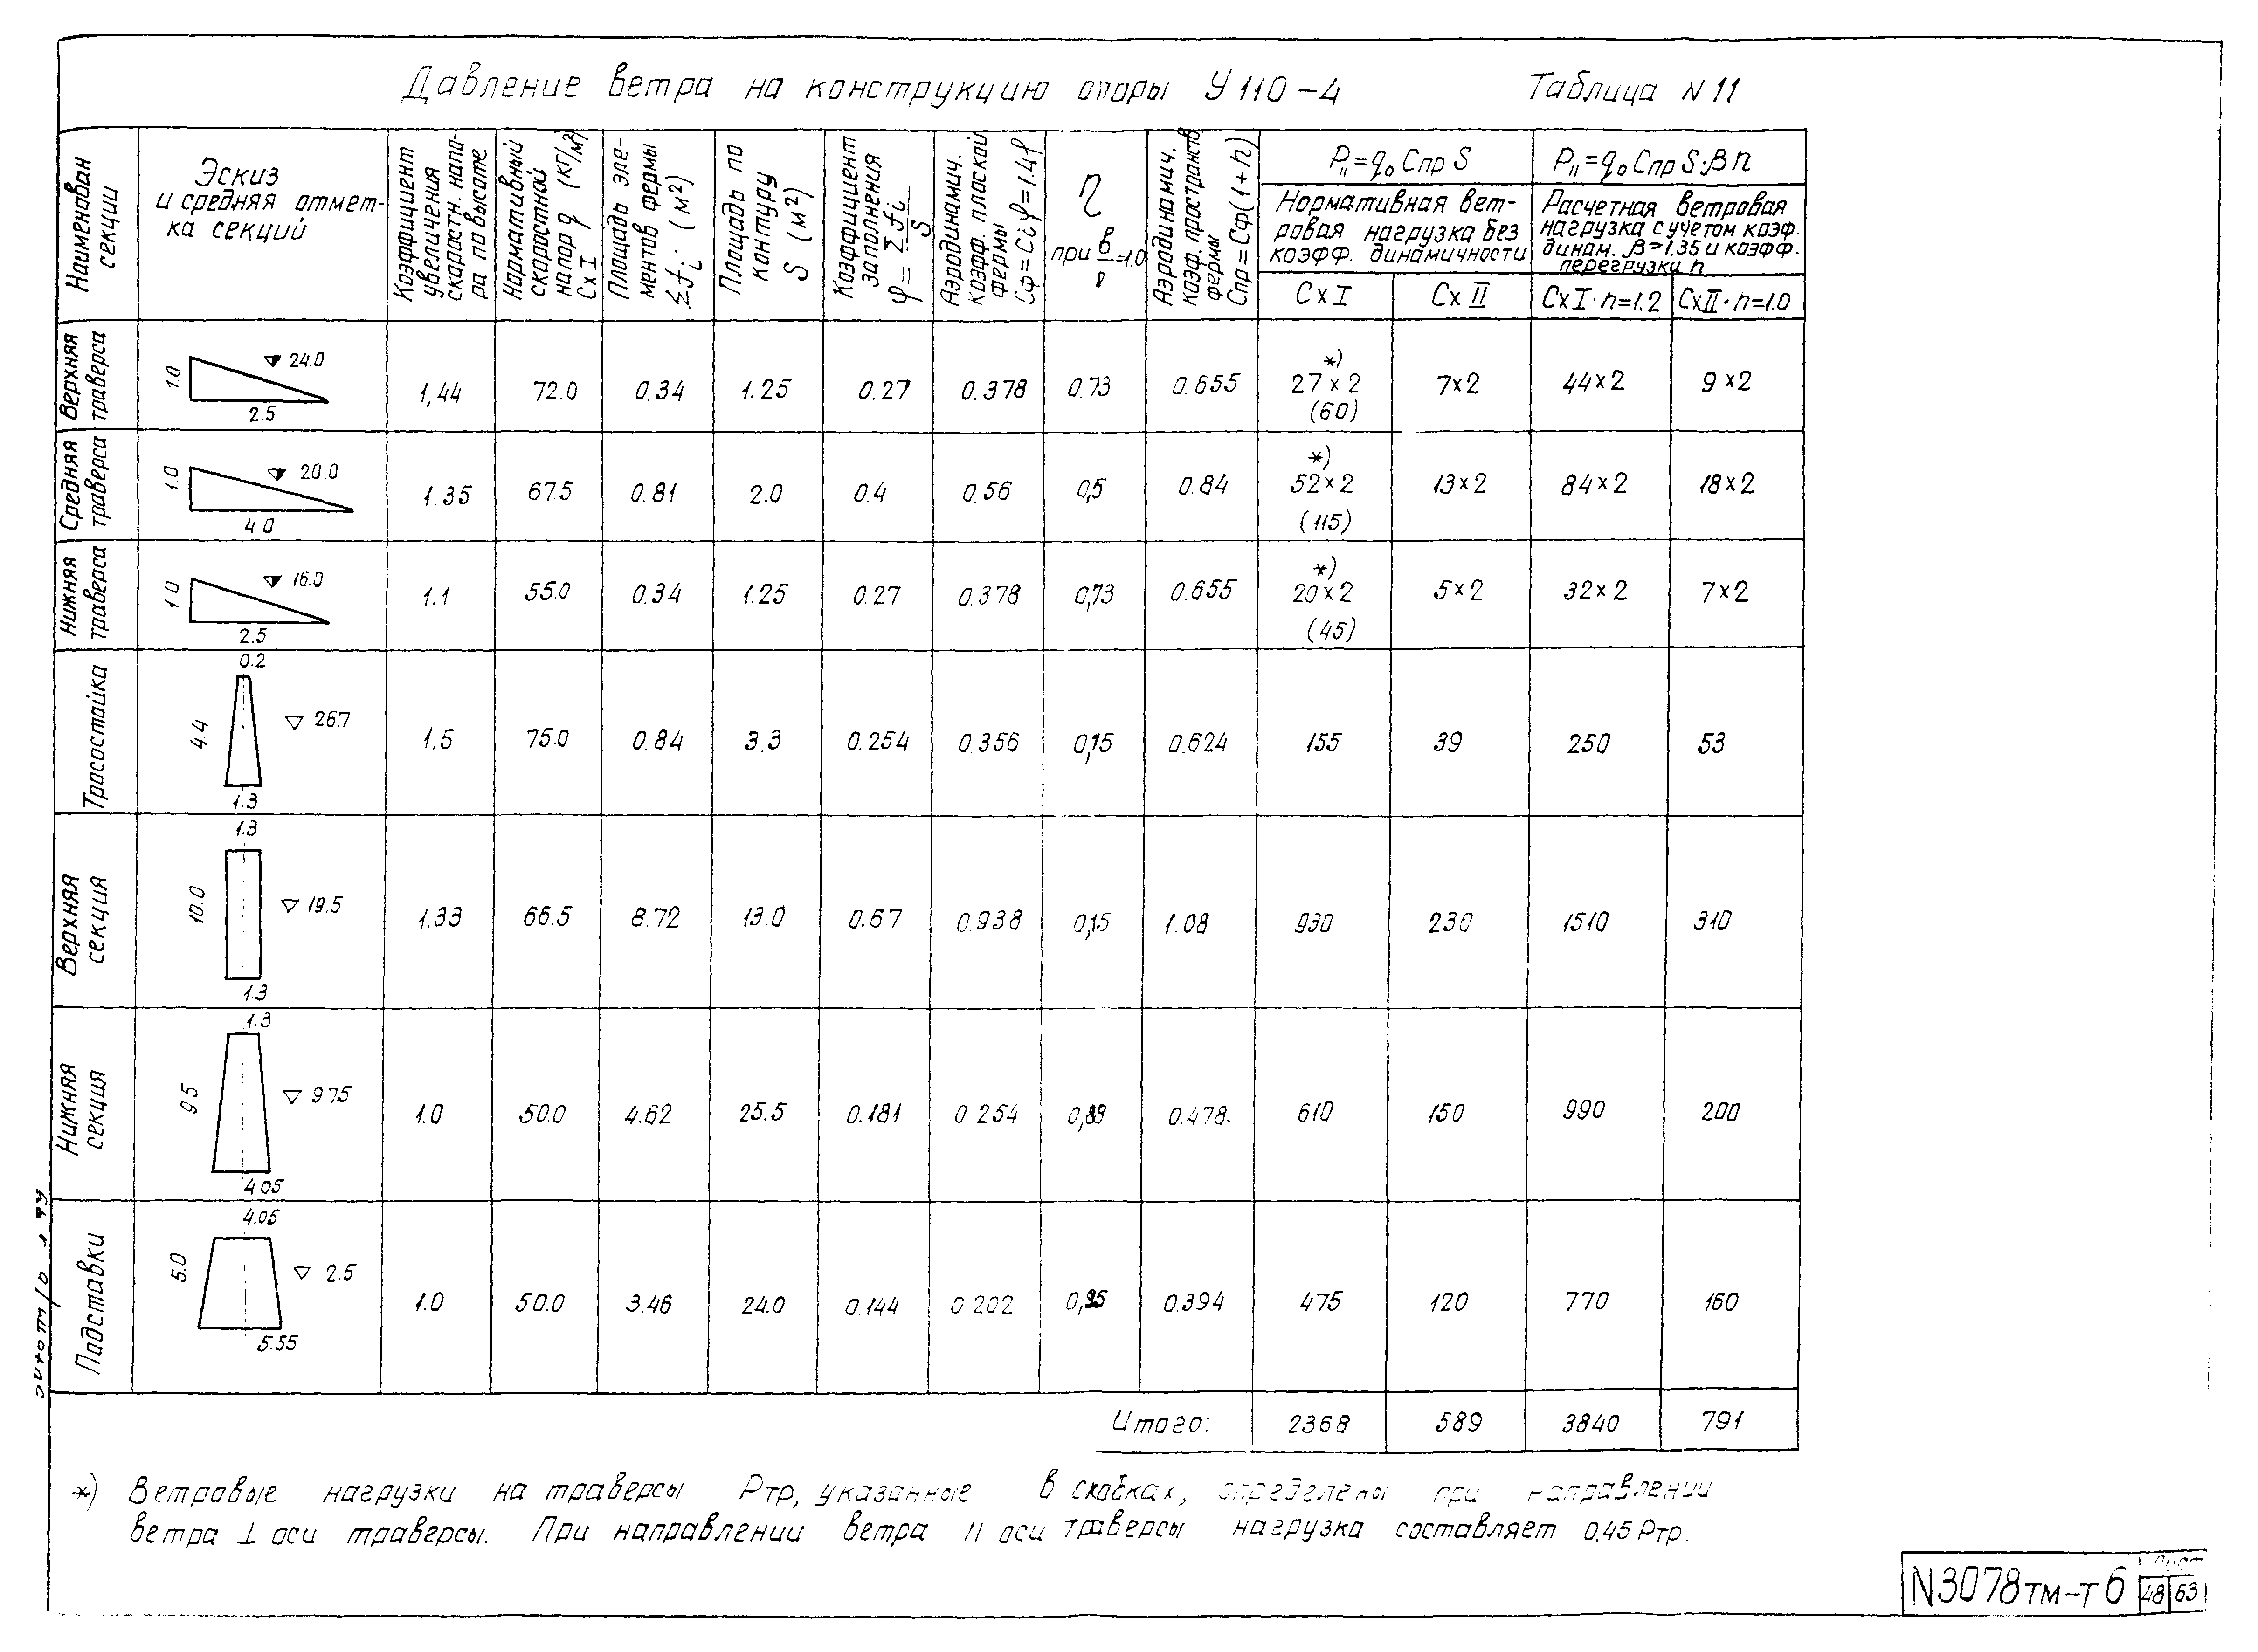 Давление ветра на конструкцию опоры У110-4 Таблица N 11
Наименован секции
Эскиз
и средняя отмет-
ка секций
Коэффициент
увеличения
скоростн. напо-
ра по высоте
Нормативный
скоростной
напор q (кг/м²)
Сх I
Площадь эле-
ментов фермы
Σfi (м²)
Площадь по
контуру
S (м²)
Коэффициент
заполнения
φ = Σfi / S
Аэродинамич.
коэфф. плоской
фермы
Сφ = Сiφ = 1.4φ
η
при в = 1.0
Аэродинамич.
коэф. пространств.
фермы
Спр = Сφ(1+η)
P॥ = q₀ Спр S
Нормативная вет-
ровая нагрузка без
коэфф. динамичности
Сх I
Сх II
P॥ = q₀ Спр S·βn
Расчетная ветровая
нагрузка с учетом коэф.
динам. β=1.35 и коэфф.
перегрузки n
Сх I · n=1.2
Сх II · n=1.0
Верхняя траверса 1.0 ▽ 24.0 2.5 1,44 72.0 0.34 1.25 0.27 0.378 0.73 0.655 *) 27×2 (60) 7×2 44×2 9×2
Средняя траверса 1.0 ▽ 20.0 4.0 1.35 67.5 0.81 2.0 0.4 0.56 0,5 0.84 *) 52×2 (115) 13×2 84×2 18×2
Нижняя траверса 1.0 ▽ 16.0 2.5 1.1 55.0 0.34 1.25 0.27 0.378 0,73 0.655 *) 20×2 (45) 5×2 32×2 7×2
Тросостойка 0.2 4.4 ▽ 26.7 1.3 1,5 75.0 0.84 3.3 0.254 0.356 0,75 0.624 155 39 250 53
Верхняя секция 1.3 10.0 ▽ 19.5 1.3 1.33 66.5 8.72 13.0 0.67 0.938 0,15 1.08 930 230 1510 310
Нижняя секция 1.3 9.5 ▽ 9.75 4.05 1.0 50.0 4.62 25.5 0.181 0.254 0,88 0.478. 610 150 990 200
Подставки 4.05 5.0 ▽ 2.5 5.55 1.0 50.0 3.46 24.0 0.144 0.202 0,95 0.394 475 120 770 160
Итого: 2368 589 3840 791
*) Ветровые нагрузки на траверсы Ртр, указанные в скобках, определены при направлении
ветра ⊥ оси траверсы. При направлении ветра ॥ оси траверсы нагрузка составляет 0,45 Ртр.
N3078тм-т6
Лист
48 63